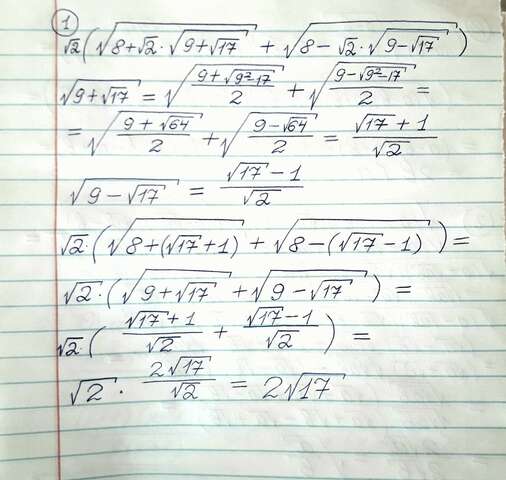 1
√2(√(8+√2·√(9+√17)) + √(8-√2·√(9-√17)))
√(9+√17) = √((9+√(9²-17))/2) + √((9-√(9²-17))/2) =
= √((9+√64)/2) + √((9-√64)/2) = (√17+1)/√2
√(9-√17) = (√17-1)/√2
√2·(√(8+(√17+1)) + √(8-(√17-1))) =
√2·(√(9+√17) + √(9-√17)) =
√2·((√17+1)/√2 + (√17-1)/√2) =
√2 · 2√17/√2 = 2√17